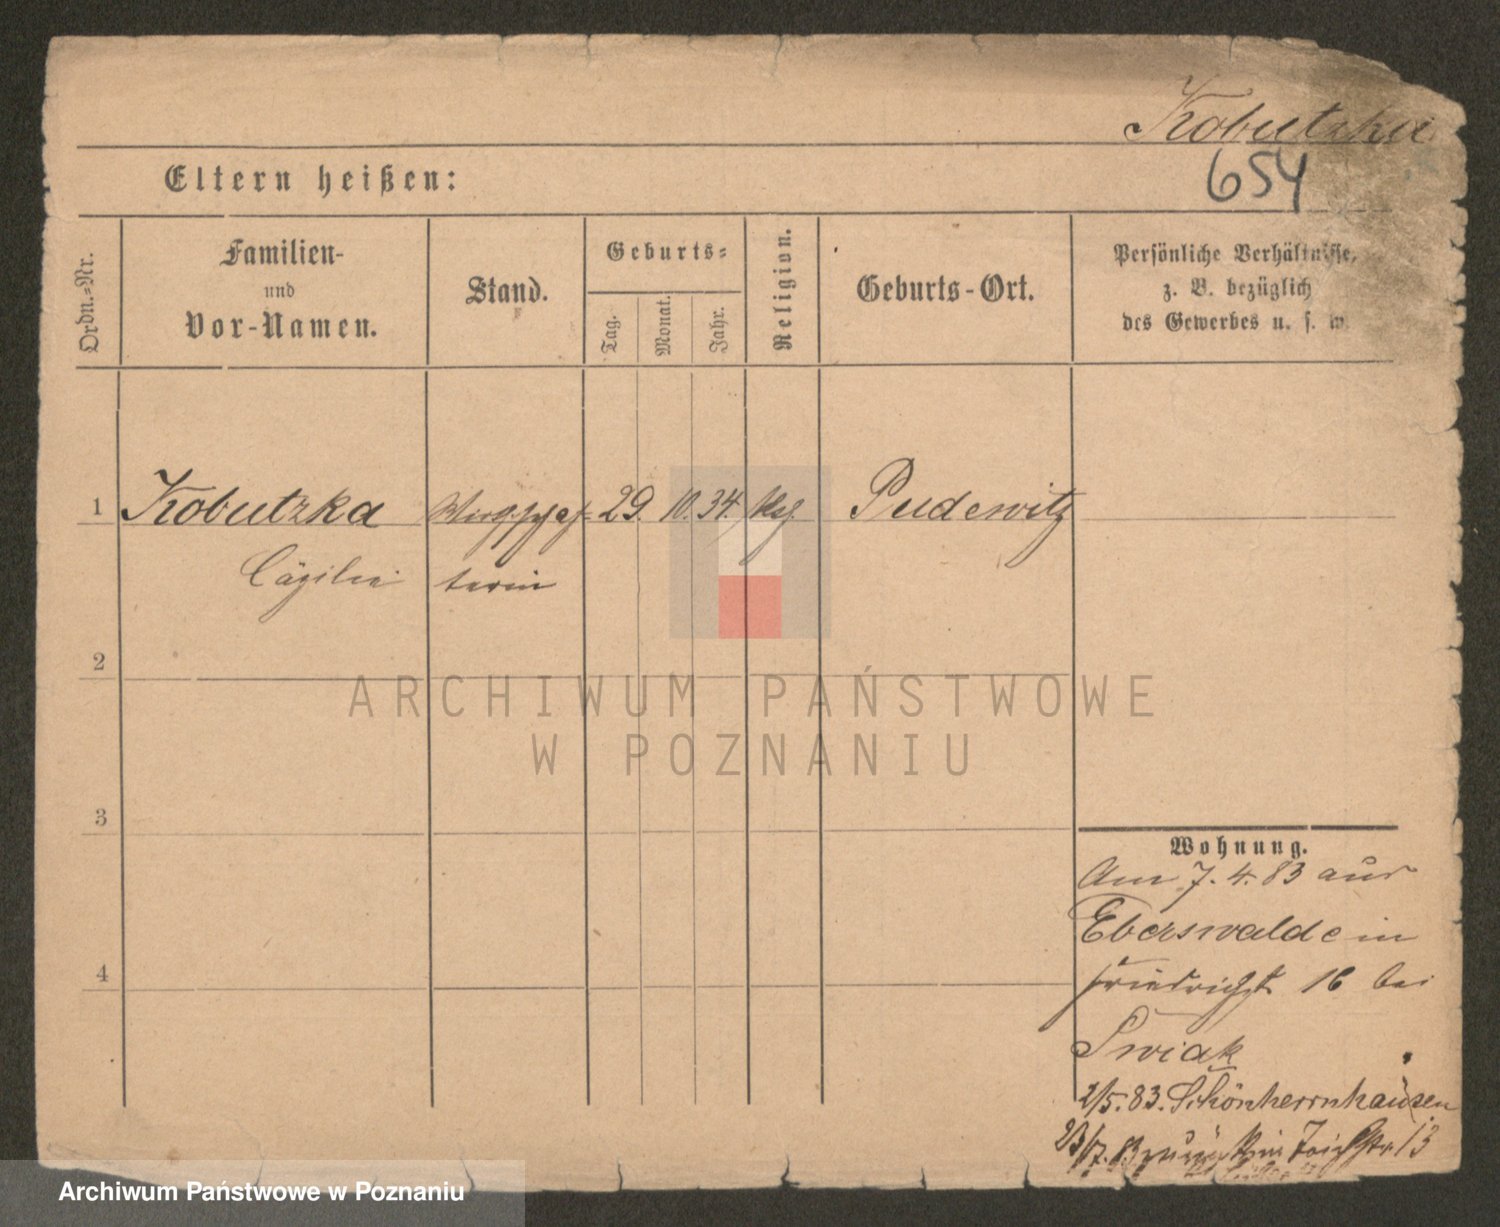 Kobutzka
654
Eltern heißen:
Ordn.-Nr.
Familien-
und
Vor-Namen.
Stand.
Geburts-
Tag.
Monat.
Jahr.
Religion.
Geburts-Ort.
Persönliche Verhältnisse,
z. B. bezüglich
des Gewerbes u. s. w.
1 Kobutzka Wirthschaf- 29. 10. 34. Pudewitz
Cäzilie terin
2
ARCHIWUM PAŃSTWOWE
W POZNANIU
3
4
Wohnung.
Am 7. 4. 83 aus
Eberswalde in
Friedrichst 16 bei
Swiak
2/5. 83. Schönherrnhausen
23/7. 83 Teichstr 13
Archiwum Państwowe w Poznaniu